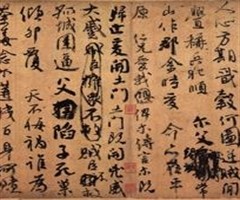 人心方期戩穀何圖逆賊間
釁稱兵犯順爾父竭誠常
山作郡余時受命亦在平
原仁兄愛我俾爾傳言爾既
歸止爰開土門土門既開凶威
大蹙賊臣不救
孤城圍逼父陷子死巢
傾卵覆天不悔禍誰為
荼毒念爾遘殘百身何贖